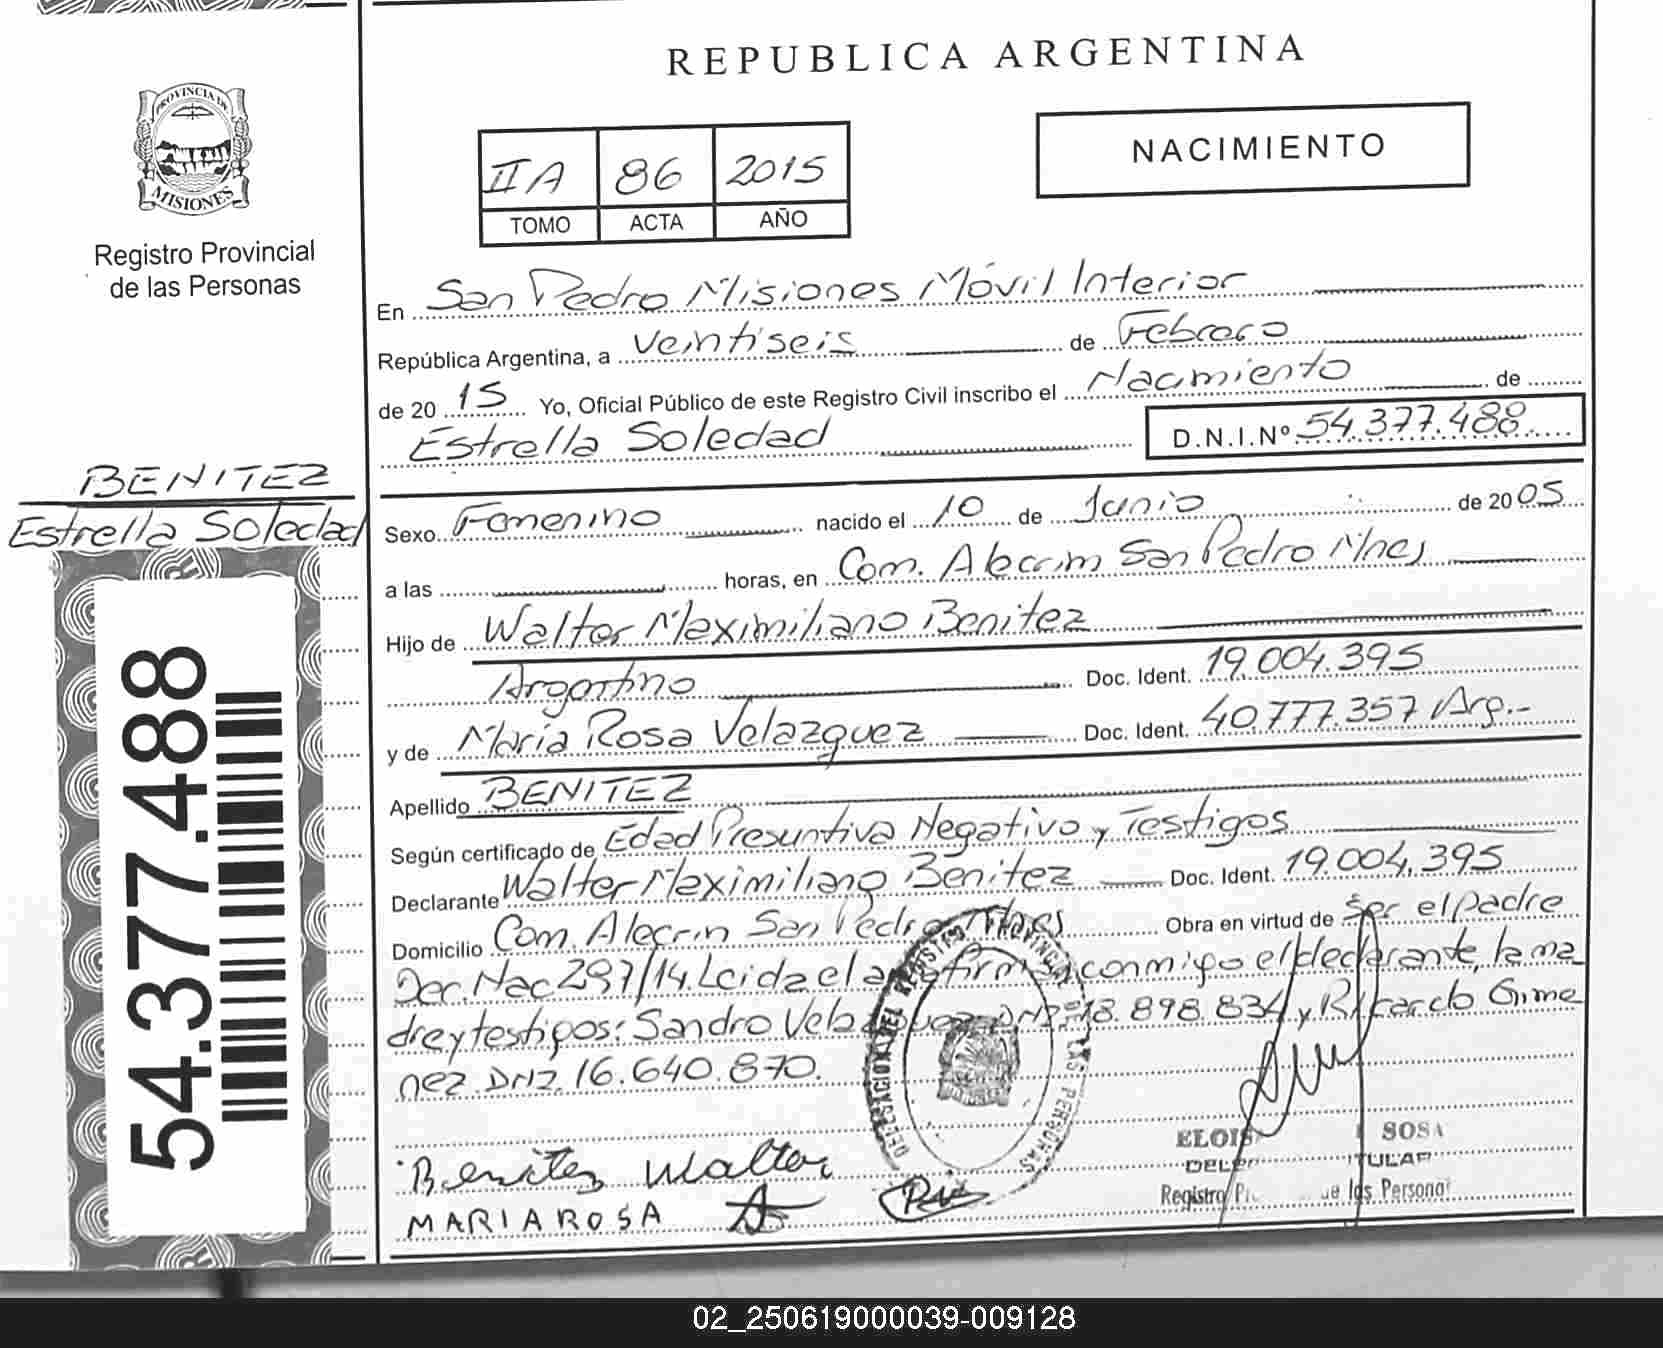 REPUBLICA ARGENTINA
PROVINCIA DE
MISIONES
Registro Provincial
de las Personas
II A 86 2015
TOMO ACTA AÑO
NACIMIENTO
En San Pedro Misiones Móvil Interior
República Argentina, a veintiseis de Febrero
de 20 15 Yo, Oficial Público de este Registro Civil inscribo el Nacimiento de
Estrella Soledad D.N.I.Nº 54.377.488
BENITEZ
Estrella Soledad
Sexo Femenino nacido el 10 de Junio de 20 05
a las horas, en Com. Alecrim San Pedro Mnes
Hijo de Walter Maximiliano Benitez
Argentino Doc. Ident. 19.004.395
y de Maria Rosa Velazquez Doc. Ident. 40.777.357 Arg.-
Apellido BENITEZ
Según certificado de Edad Presuntiva Negativo y Testigos
Declarante Walter Maximiliano Benitez Doc. Ident. 19.004.395
Domicilio Com. Alecrin San Pedro Mnes Obra en virtud de Ser el padre
Dec. Nac 297/14. Leida el acta firman conmigo el declarante, la ma
dre y testigos: Sandro Velazquez DNI 18.898.834 y Ricardo Gime
nez. DNI. 16.640.870.
54.377.488
DELEGACION DEL REGISTRO PROVINCIAL LAS PERSONAS
Benites Walter
MARIA ROSA
SOSA
Registro de las Personas
02_250619000039-009128